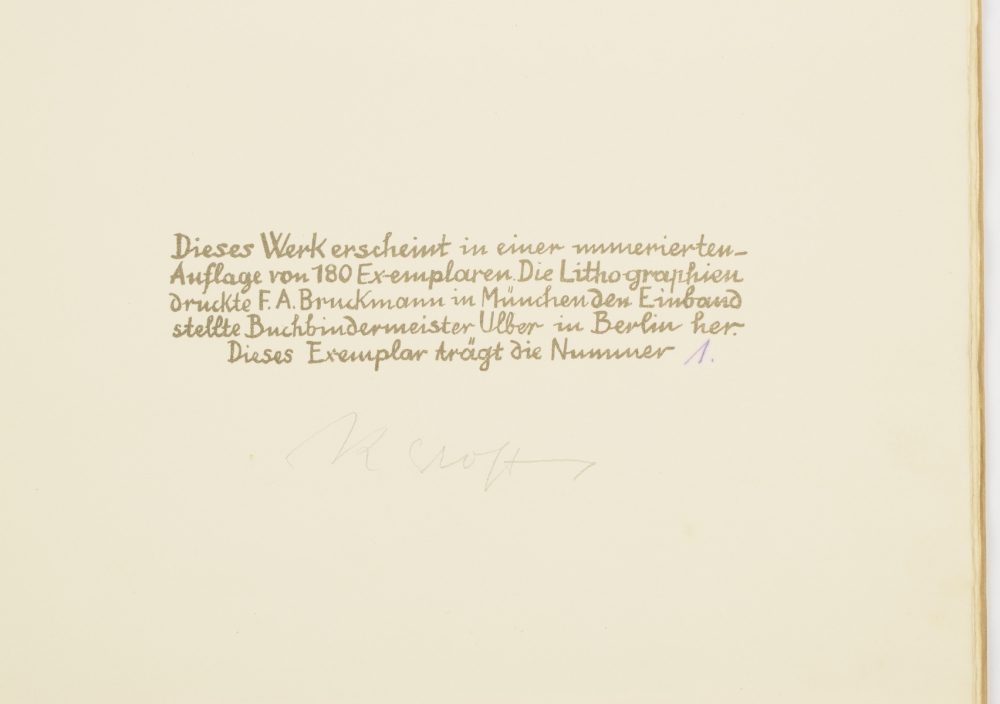 Dieses Werk erscheint in einer numerierten
Auflage von 180 Exemplaren. Die Lithographien
druckte F. A. Bruckmann in München den Einband
stellte Buchbindermeister Ulber in Berlin her.
Dieses Exemplar trägt die Nummer 1.